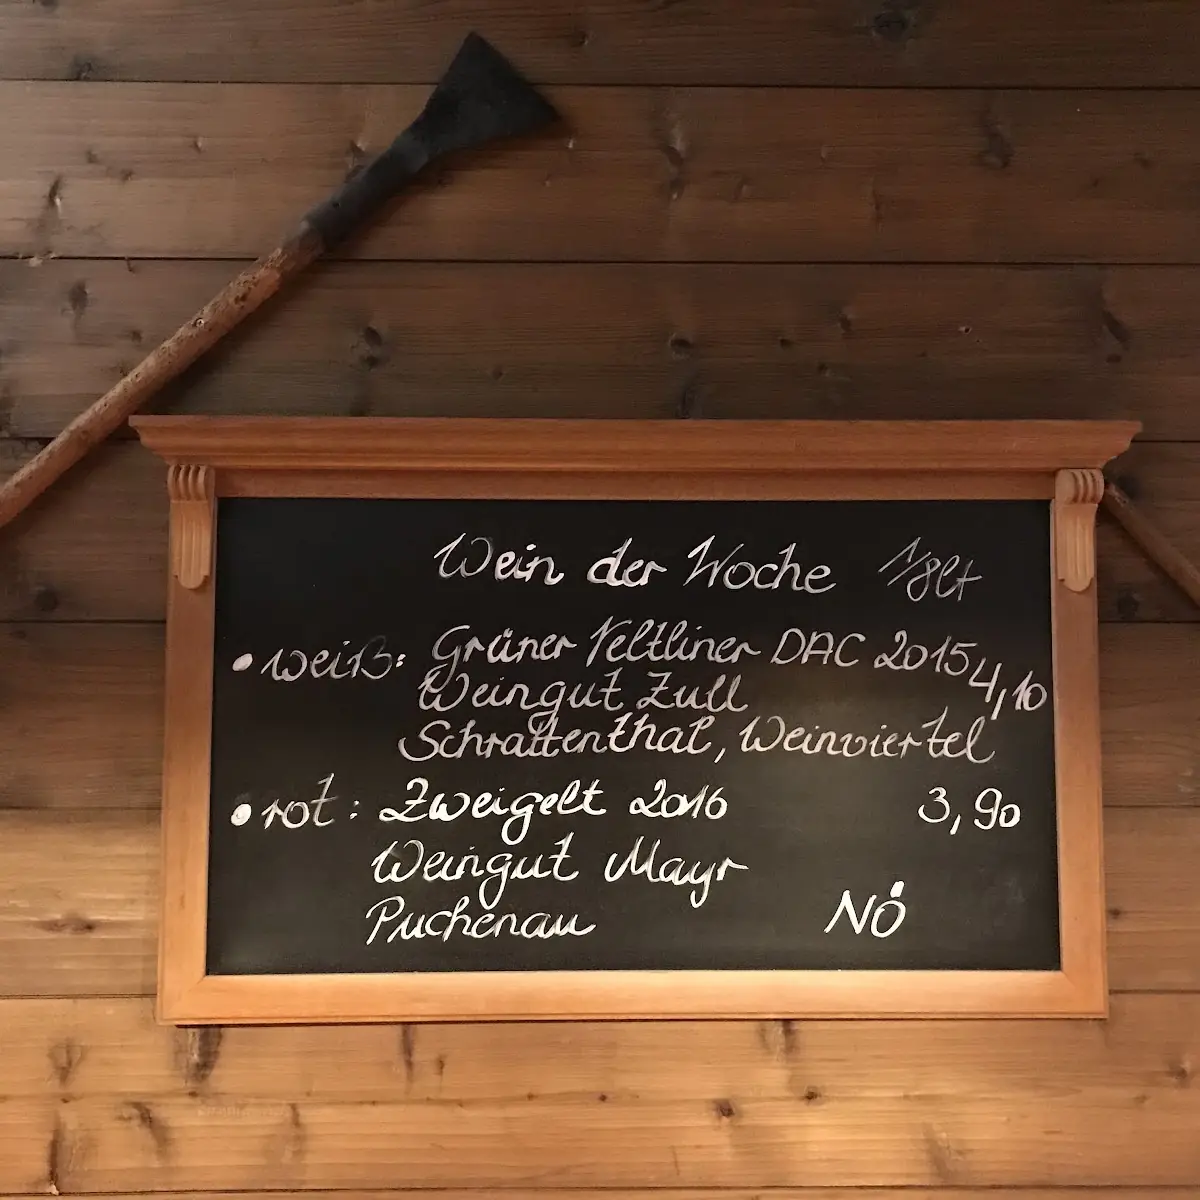 Wein der Woche 1/8lt
• weiß: Grüner Veltliner DAC 2015 4,10
Weingut Zull
Schrattenthal, Weinviertel
• rot: Zweigelt 2016 3,90
Weingut Mayr
Puchenau NÖ